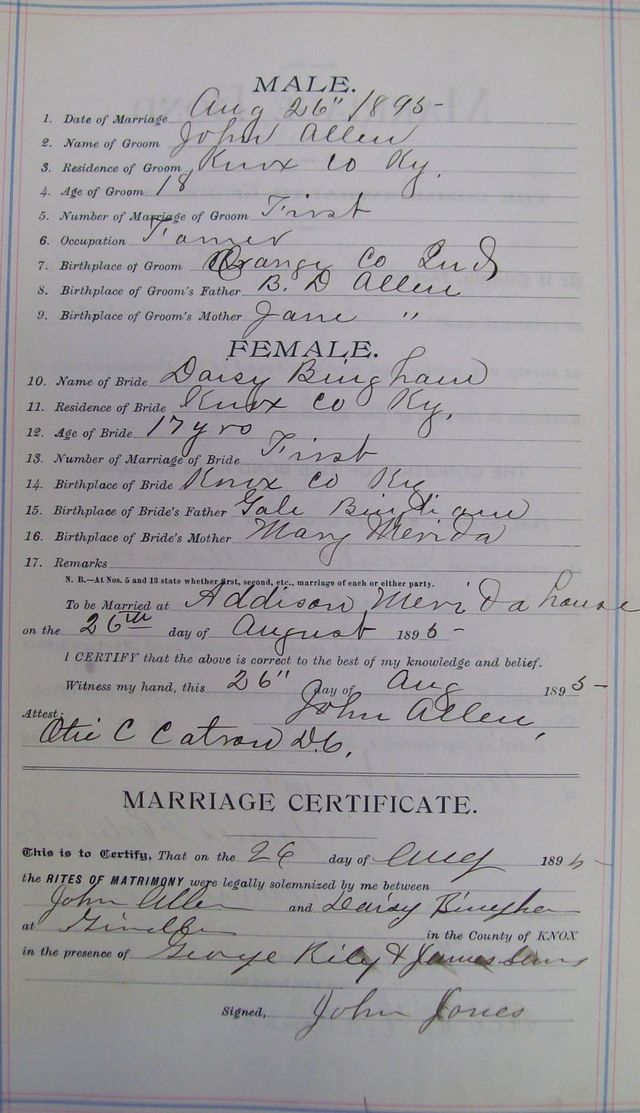 MALE.
1. Date of Marriage Aug 26" 1895
2. Name of Groom John Allen
3. Residence of Groom Knox Co Ky.
4. Age of Groom 18
5. Number of Marriage of Groom First
6. Occupation Farmer
7. Birthplace of Groom Orange Co Ind
8. Birthplace of Groom's Father B. D Allen
9. Birthplace of Groom's Mother Jane "
FEMALE.
10. Name of Bride Daisy Bingham
11. Residence of Bride Knox Co Ky.
12. Age of Bride 17 yrs
13. Number of Marriage of Bride First
14. Birthplace of Bride Knox Co Ky
15. Birthplace of Bride's Father Gale
16. Birthplace of Bride's Mother Mary Merida
17. Remarks
N. B.—At Nos. 5 and 13 state whether first, second, etc., marriage of each or either party.
To be Married at Addison Merida house
on the 26th day of August 1895
I CERTIFY that the above is correct to the best of my knowledge and belief.
Witness my hand, this 26" day of Aug 1895
John Allen,
Attest:
C Catron D.C.
MARRIAGE CERTIFICATE.
This is to Certify, That on the 26 day of Aug 1895
the RITES OF MATRIMONY were legally solemnized by me between
John Allen and Daisy Bingham
at in the County of KNOX
in the presence of George Rily & James
Signed, John Jones